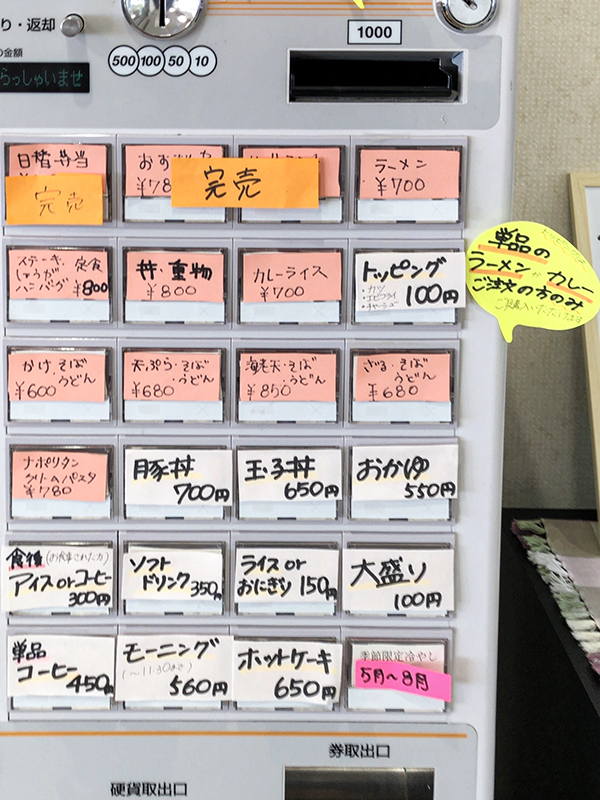 り・返却
の金額
らっしゃいませ
500 100 50 10
1000
日替弁当
完売
¥78
完売
ラーメン
¥700
ステーキ
しょうが
ハンバーグ
定食
¥800
丼・重物
¥800
カレーライス
¥700
トッピング
・カツ
・エビフライ
100円
単品の
ラーメン カレー
ご注文の方のみ
かけ そば
うどん
¥600
天ぷら・そば
うどん
¥680
海老天・そば
うどん
¥850
ざる・そば
うどん
¥680
ナポリタン
¥780
豚丼
700円
玉子丼
650円
おかゆ
550円
食後(お食事された方)
アイスorコーヒー
300円
ソフト
ドリンク 350円
ライスor
おにぎり 150円
大盛り
100円
単品
コーヒー
450円
モーニング
(~11:30まで)
560円
ホットケーキ
650円
季節限定冷やし
5月~8月
硬貨取出口
券取出口